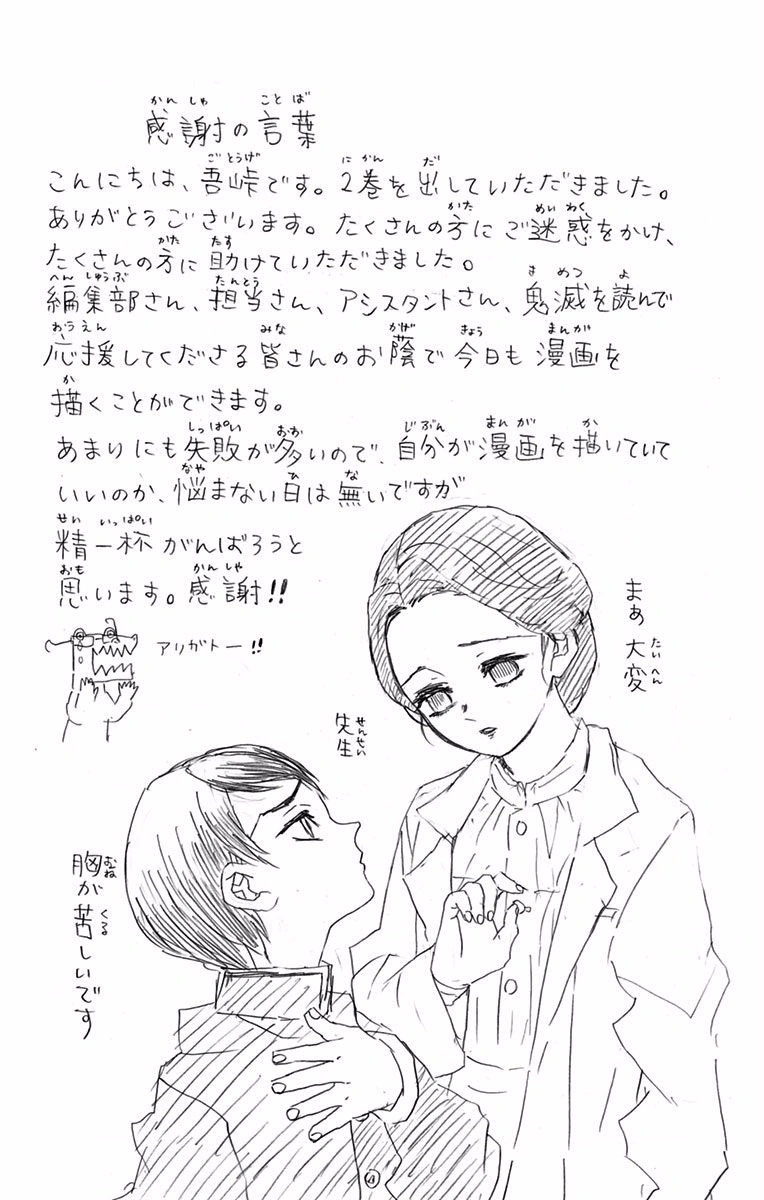 感謝の言葉
こんにちは、吾峠です。2巻を出していただきました。
ありがとうございます。たくさんの方にご迷惑をかけ、
たくさんの方に助けていただきました。
編集部さん、担当さん、アシスタントさん、鬼滅を読んで
応援してくださる皆さんのお蔭で今日も漫画を
描くことができます。
あまりにも失敗が多いので、自分が漫画を描いていて
いいのか、悩まない日は無いですが
精一杯がんばろうと
思います。感謝!!
アリガトー!!
まぁ大変
先生
胸が苦しいです